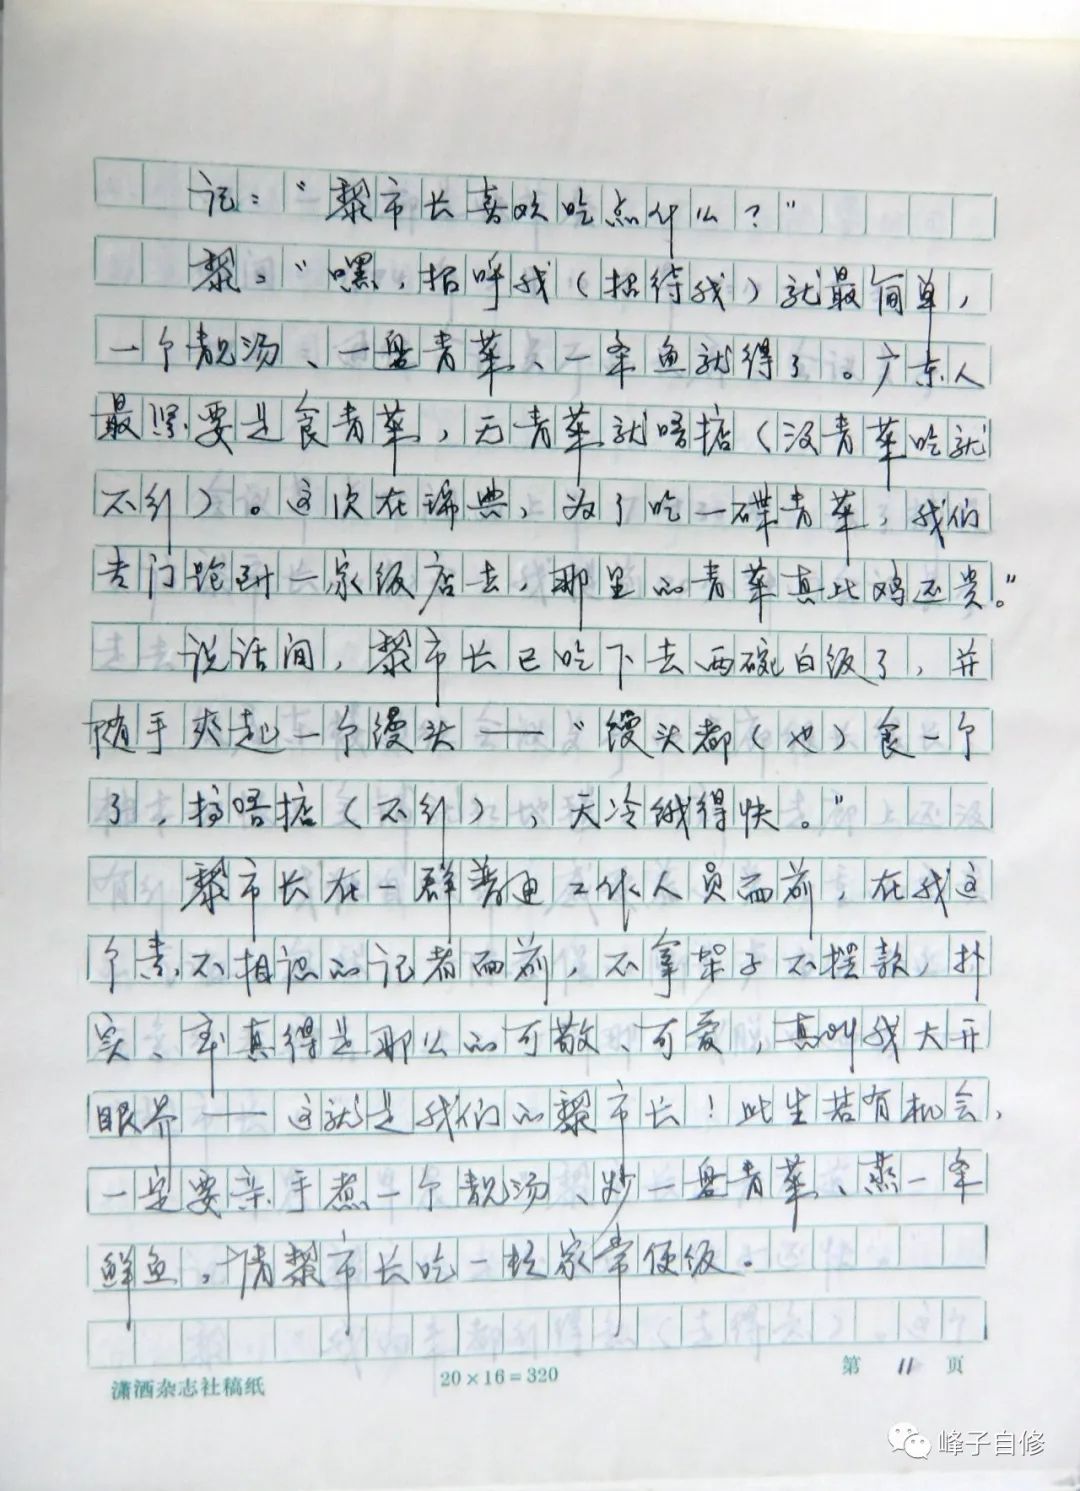 记：“黎市长喜欢吃点什么？”
黎：“嘿，招呼我（招待我）就最简单，
一个靓汤、一盘青菜、一条鱼就得了。广东人
最紧要是食青菜，无青菜就唔掂（没青菜吃就
不行）。这次在瑞典，为了吃一碟青菜，我们
专门跑到一家饭店去，那里的青菜真比鸡还贵。”
说话间，黎市长已吃下去两碗白饭了，并
随手夹起一个馒头——“馒头都（也）食一个
了，搞唔掂（不行），天冷饿得快。”
黎市长在一群普通工作人员面前，在我这
个素不相识的记者面前，不拿架子不摆款，朴
实、率真得是那么的可敬、可爱，真叫我大开
眼界——这就是我们的黎市长！此生若有机会，
一定要亲手煮一个靓汤、炒一盘青菜、蒸一条
鲜鱼，请黎市长吃一顿家常便饭。
潇洒杂志社稿纸
20×16=320
第 11 页
峰子自修